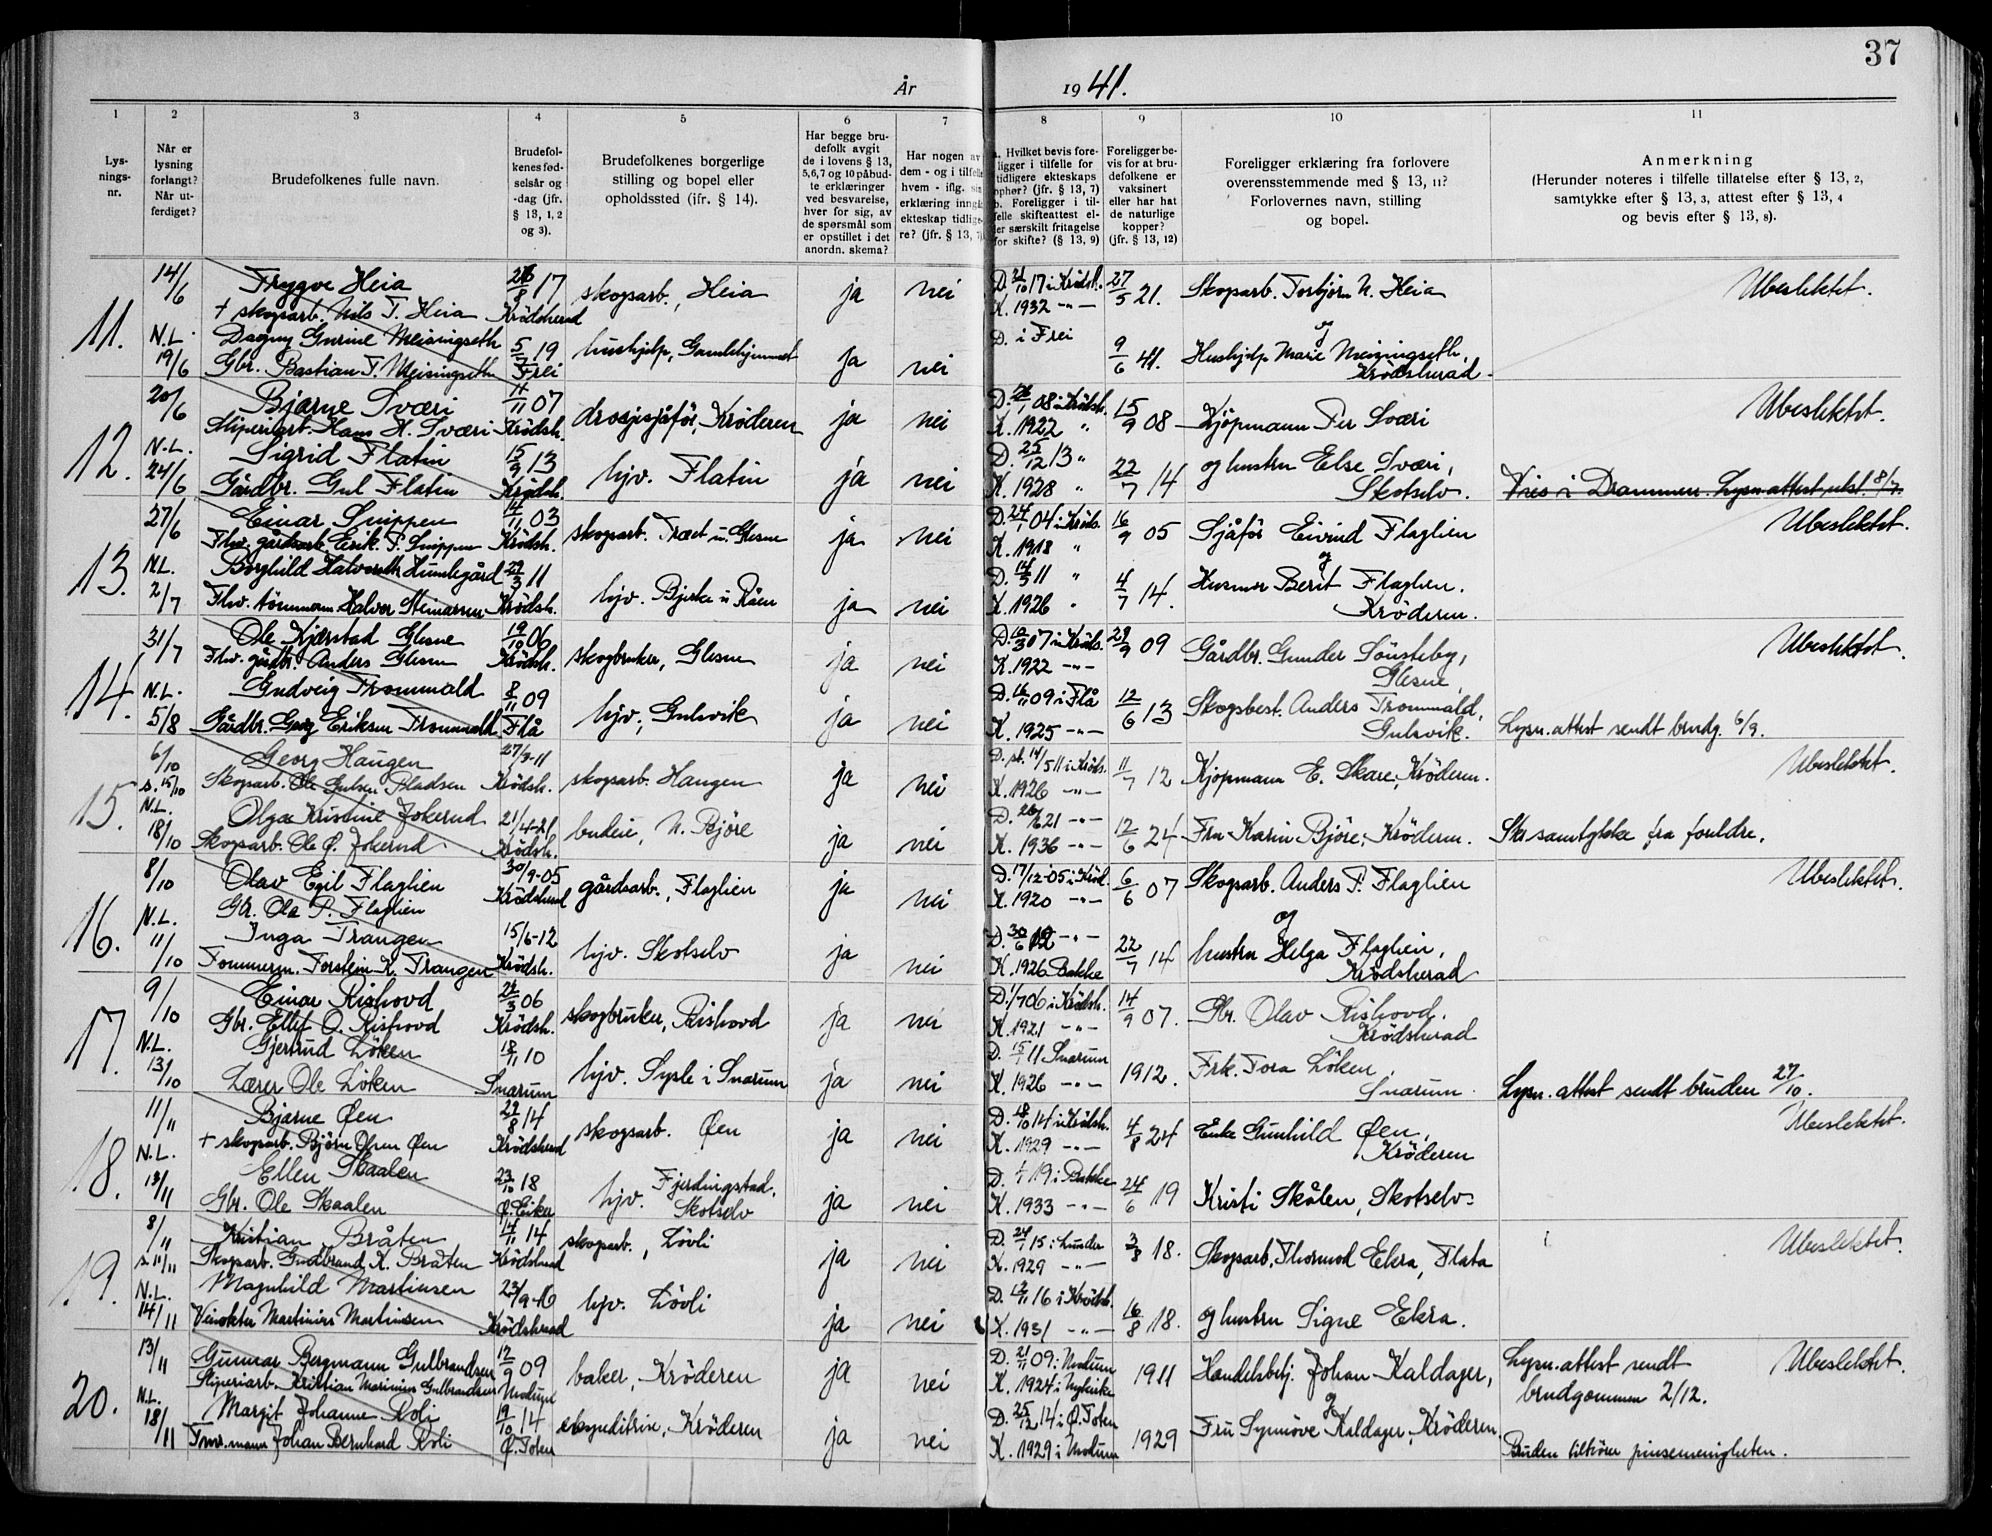 37
År 1941.
1 2 3 4 5 6 7 8 9 10 11
Lys-
nings-
nr.
Når er
lysning
forlangt?
Når ut-
ferdiget?
Brudefolkenes fulle navn.
Brudefol-
kenes fød-
selsår og
-dag (jfr.
§ 13, 1, 2
og 3).
Brudefolkenes borgerlige
stilling og bopel eller
opholdssted (ifr. § 14).
Har begge bru-
defolk avgit
de i lovens § 13,
5,6,7 og 10 påbud-
te erklæringer
ved besvarelse,
hver for sig, av
de spørsmål som
er opstillet i det
anordn. skema?
Har nogen av
dem - og i tilfelle
hvem - iflg. sin
erklæring inngå
ekteskap tidlige-
re? (jfr. § 13, 7)
Hvilket bevis fore-
ligger i tilfelle for
tidligere ekteskaps
ophør? (jfr. § 13, 7)
b. Foreligger i til-
felle skifteattest el-
ler særskilt fritagelse
for skifte? (§ 13, 9)
Foreligger be-
vis for at bru-
defolkene er
vaksinert
eller har hat
de naturlige
kopper?
(jfr. § 13, 12)
Foreligger erklæring fra forlovere
overensstemmende med § 13, 11?
Forlovernes navn, stilling
og bopel.
Anmerkning
(Herunder noteres i tilfelle tillatelse efter § 13, 2,
samtykke efter § 13, 3, attest efter § 13, 4
og bevis efter § 13, 8).
11. 14/6 Trygve Heia 26/8 17 skogsarb., Heia ja nei D. 21/10 17 i Krødsh. 27/5 21. Skogsarb. Torbjørn N. Heia Ubeslektet.
+ skogsarb. Nils T. Heia Krødsherad K. 1932 -"-
N.L. Dagny Gurine Meisingseth 5/7 19 hushjelp, Gamlehjemmet ja nei D. i Frei 9/6 41. og Hushjelp Marie Meisingseth,
19/6 Gbr. Bastian T. Meisingseth Frei Krødsherad.
12. 20/6 Bjarne Sværi 11/11 07 drosjesjåfør, Krøderen ja nei D. 26/1 08 i Krødsh. 15/9 08 Kjøpmann Per Sværi Ubeslektet.
Sliperiarb. Hans H. Sværi Krødsh. K. 1922 "
N.L. Sigrid Flatin 15/9 13 hjv. Flatin ja nei D. 25/12 13 " 22/7 14 og hustru Else Sværi,
24/6 Gårdbr. Gul Flatin Krødsh. K. 1928 " Skotselv. Vies i Drammen. Lysn.attest utst. 8/7.
13. 27/6 Einar Snippen 14/11 03 skogsarb. Træet u. Glesne ja nei D. 24/1 04 i Krøds. 16/9 05 Sjåfør Eivind Flaglien Ubeslektet.
Fhv. gårdsarb. Erik P. Snippen Krødsh. K. 1918 "
N.L. Borghild Halvorsdt. Humlegård 29/3 11 hjv. Bjerke u. Råen ja nei D. 14/5 11 " 4/7 14. og Husmor Berit Flaglien.
2/7 Fhv. tømmerm. Halvor Steinarsen Krødsh. K. 1926 " Krøderen.
14. 31/7 Ole Kjærstad Glesne 19/10 06 skogbruker, Glesne ja nei D. 10/3 07 i Krøds. 29/9 09 Gårdbr. Gunder Sønsteby, Ubeslektet.
Fhv. gårdbr. Anders Glesne Krødsh. K. 1922 -"- Glesne,
N.L. Gudveig Trommald 8/11 09 hjv., Gulsvik ja nei D. 16/11 09 i Flå 12/6 13 Skogsbest. Anders Trommald,
5/8 Gårdbr. Georg Eriksen Trommald Flå K. 1925 -"- Gulsvik. Lysn. attest sendt brudg. 6/9.
15. 6/10 Georg Haugen 27/3-11 skogsarb. Haugen ja nei D. st. 14/5 11 i Krøds. 11/7 12 Kjøpmann E. Skare, Krøderen. Ubeslektet.
s. 15/10 Skogsarb. Ole Gulsen Pladsen Krødsh. K. 1926 -"-
N.L. Olga Kristine Jokerud 21/4-21 budeie, N. Bjøre ja nei D. 26/6 21 -"- 12/6 24 Fru Karin Bjøre, Krøderen. Skr. samtykke fra foreldre.
18/10 Skogsarb. Ole Ø. Jokerud Krødsh. K. 1936 -"-
16. 8/10 Olav Egil Flaglien 30/9-05 gårdsarb., Flaglien ja nei D. 17/12-05 i Krød. 6/6 07 Skogsarb. Anders P. Flaglien Ubeslektet.
Gbr. Ole P. Flaglien Krødsherad K. 1920 -"-
N.L. Inga Trangen 15/6-12 hjv. Skotselv ja nei D. 30/6 12 -"- 22/7 14 og hustru Helga Flaglien,
11/10 Tømmerm. Torstein K. Trangen Krødsh. K. 1926 Bakke Krødsherad
17. 9/10 Einar Rishovd 22/3 06 skogbruker, Rishovd ja nei D. 1/7 06 i Krødsh. 14/9 07. Gbr. Olav Rishovd.
Gbr. Ellef O. Rishovd Krødsh. K. 1921 -"- Krødsherad
N.L. Gjertrud Løken 18/11 10 hjv. Sysle i Snarum ja nei D. 15/1 11 Snarum 1912. Frk. Tora Løken,
13/10 Lærer Ole Løken Snarum K. 1926 -"- Snarum. Lysn. attest sendt bruden 27/10.
18. 11/11 Bjarne Øen 29/8 14 skogsarb. Øen ja nei D. 18/10 14 i Krødsh. 4/8 24 Enke Gunhild Øen, Ubeslektet.
+ skogsarb. Bjørn Olsen Øen Krødsherad K. 1929 -"- Krøderen
N.L. Ellen Skaalen 23/10 18 hjv. Fjerdingstad, ja nei D. 1/1 19 i Bakke 24/6 19 Kristi Skålen, Skotselv.
13/11 Gbr. Ole Skaalen Ø. Eiker Skotselv K. 1933 -"-
19. 8/11 Kristian Bråten 14/11 14 skogsarb., Løvli ja nei D. 24/1 15 i Lunder 3/8 18. Skogsarb. Thormod Ekra, Flata Ubeslektet.
s. 11/11 Skogsarb. Gudbrand K. Bråten Krødsherad K. 1929 -"-
N.L. Magnhild Martinsen 23/9-16 hjv. Løvli ja nei D. 12/11 16 i Krødsh. 16/8 18. og hustru Signe Ekra.
14/11 Veivokter Martinius Martinsen Krødsherad K. 1931 -"-
20. 13/11 Gunnar Bergmann Gulbrandsen 12/9 09 baker, Krøderen ja nei D. 21/11 09 i Modum 1911 Handelsbetj. Johan Kaldager, Lysn. attest sendt Ubeslektet.
Sliperiarb. Kristian Marinius Gulbrandsen Modum K. 1924 i Nykirke brudgommen 2/12.
N.L. Margit Johanne Roli 19/10 14 ekspeditrise, Krøderen ja nei D. 25/12 14 i Ø. Toten 1929 og Fru Synnøve Kaldager, Krøderen.
18/11 Tmr.mann Johan Bernhard Roli Ø. Toten K. 1929 i Modum Bruden tilhører pinsemenigheten.